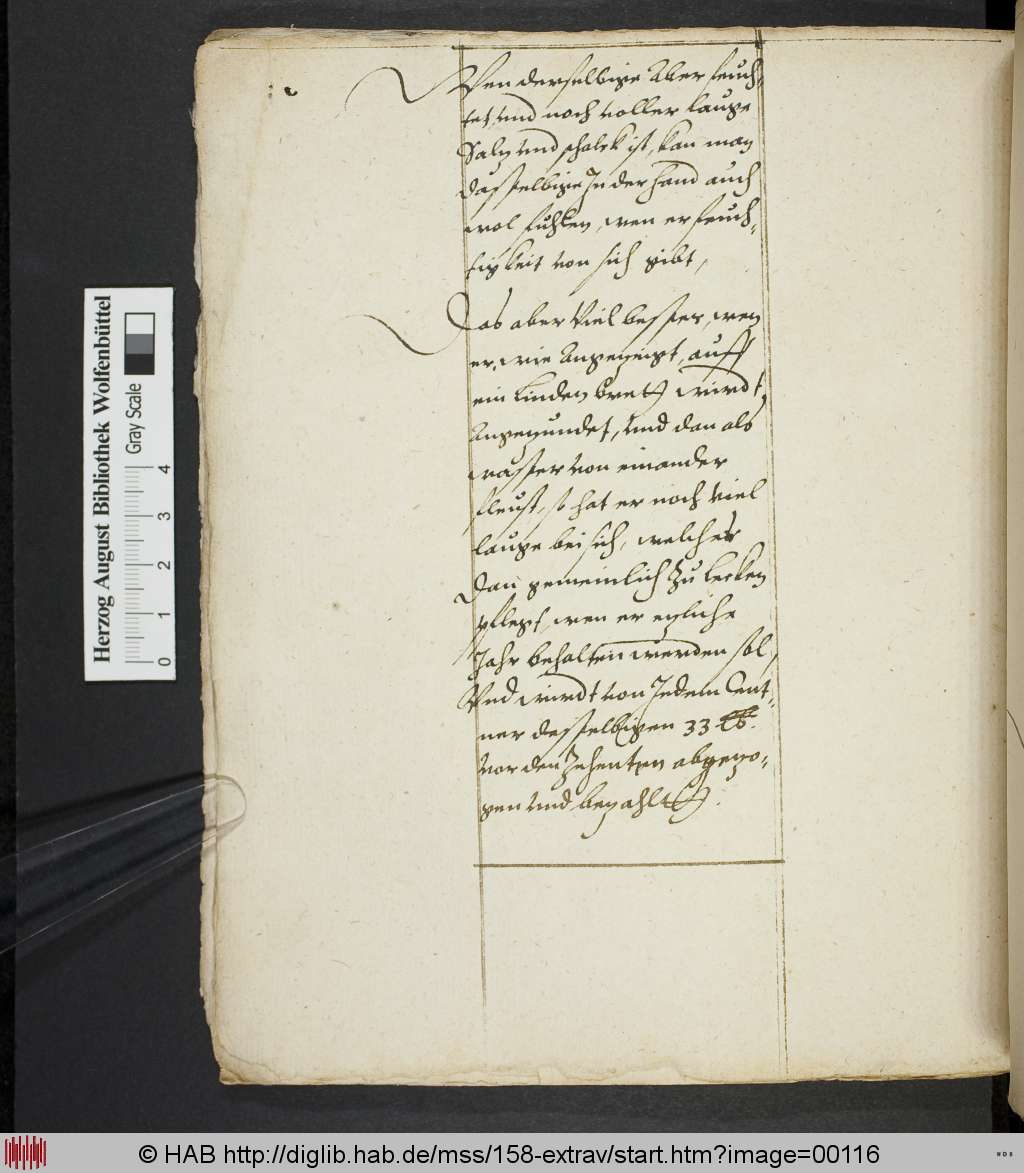 Wen derselbige Aber feuch-
tet, und noch voller lauge
Saltz und schalck ist, kan man
dasselbige In der hand auch
wol fuhlen, wen er feuch-
tigkeit von sich gibt,
Das aber Viel besser, wen
er, wie Angezeigt, auff
ein Linden bret wirdt
Angezundet, Und dan als
wasser von einander
fleust, so hat er noch Viel
lauge bei sich, welcher
dan gemeinlich Zu lecken
pflegt, wen er etzliche
Jahr behalten werden sol,
Und wirdt von Jedem Cent-
ner desselbigen 33 ℔.
vor den Zehenten abgezo-
gen und bezahlt.
Herzog August Bibliothek Wolfenbüttel
Gray Scale
0 1 2 3 4
© HAB http://diglib.hab.de/mss/158-extrav/start.htm?image=00116